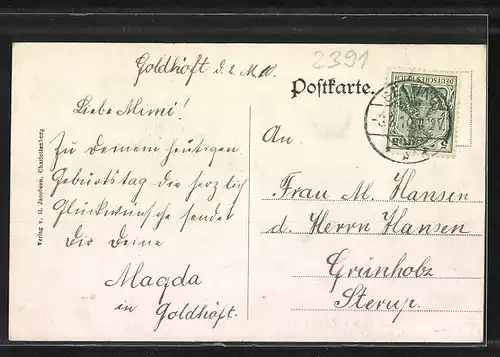 Goldhöft d. 2.
2391
Postkarte.
DEUTSCHES REICH
Liebe Mimi!
Zu Deinem heutigen
Geburtstag die herzlich
Glückwünsche sendet
Dir Deine
Magda
in Goldhöft.
An
Frau M. Hansen
d. Herrn Hansen
Grünholz
Sterup.
Verlag v. H. Jacobsen, Charlottenburg